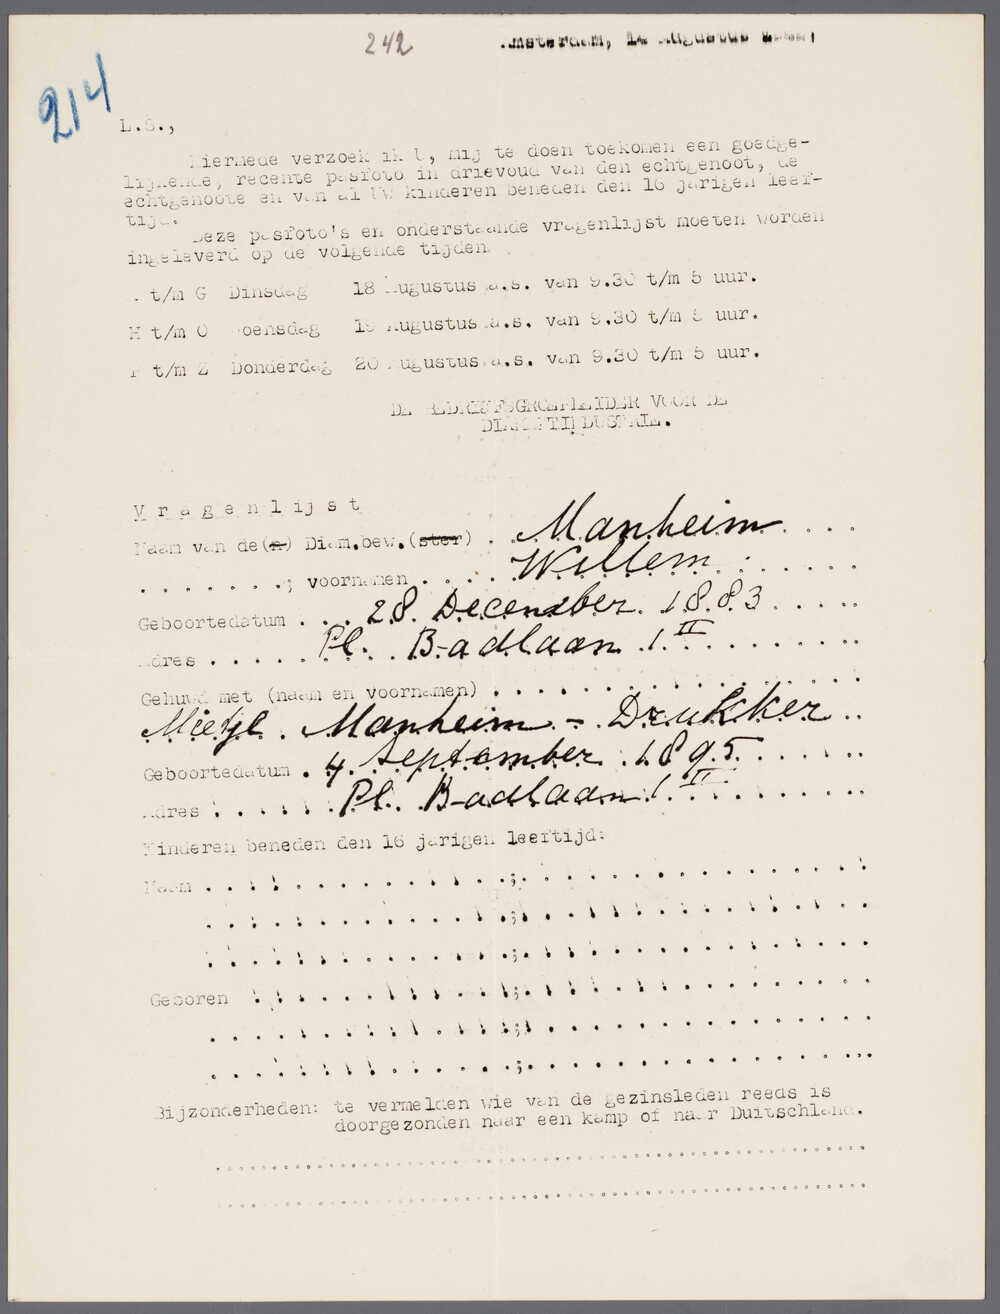 242
Amsterdam, 14 Augustus
214
L.S.,
Hiermede verzoek ik U, mij te doen toekomen een goedge-
lijkende, recente pasfoto in drievoud van den echtgenoot, de
echtgenoote en van al Uw kinderen beneden den 16 jarigen leef-
tijd.
Deze pasfoto's en onderstaande vragenlijst moeten worden
ingeleverd op de volgende tijden
A t/m G Dinsdag 18 Augustus a.s. van 9.30 t/m 5 uur.
H t/m O Woensdag 19 Augustus a.s. van 9.30 t/m 5 uur.
P t/m Z Donderdag 20 Augustus a.s. van 9.30 t/m 5 uur.
DE BEDRIJFSGROEPLEIDER VOOR DE
DIAMANTINDUSTRIE.
Vragenlijst
Naam van de(n) Diam.bew.(ster) . Manheim . . . .
. . . . . . .; voornamen . . . . Willem . . . . . . .
Geboortedatum . . . 28 December 1883 . . . . .
Adres . . . . . . Pl. Badlaan 1 II . . . . . . .
Gehuwd met (naam en voornamen) . . . . . . . . . . . . . . . . . .
Mietje Manheim - Drukker ..
Geboortedatum . 4 September 1895 . . . . . ..
Adres . . . . . . Pl. Badlaan 1 II . . . . . . . . ..
Kinderen beneden den 16 jarigen leeftijd:
Naam . . . . . . . . . . . . . . .;. . . . . . . . . . . . . . . . .
. . . . . . . . . . . . . . .;. . . . . . . . . . . . . . . . .
. . . . . . . . . . . . . . .;. . . . . . . . . . . . . . . . .
Geboren . . . . . . . . . . . . .;. . . . . . . . . . . . . . . . .
. . . . . . . . . . . . . . .;. . . . . . . . . . . . . . . . .
. . . . . . . . . . . . . . .;. . . . . . . . . . . . . . . ...
Bijzonderheden: te vermelden wie van de gezinsleden reeds is
doorgezonden naar een kamp of naar Duitschland.
................................................................
................................................................